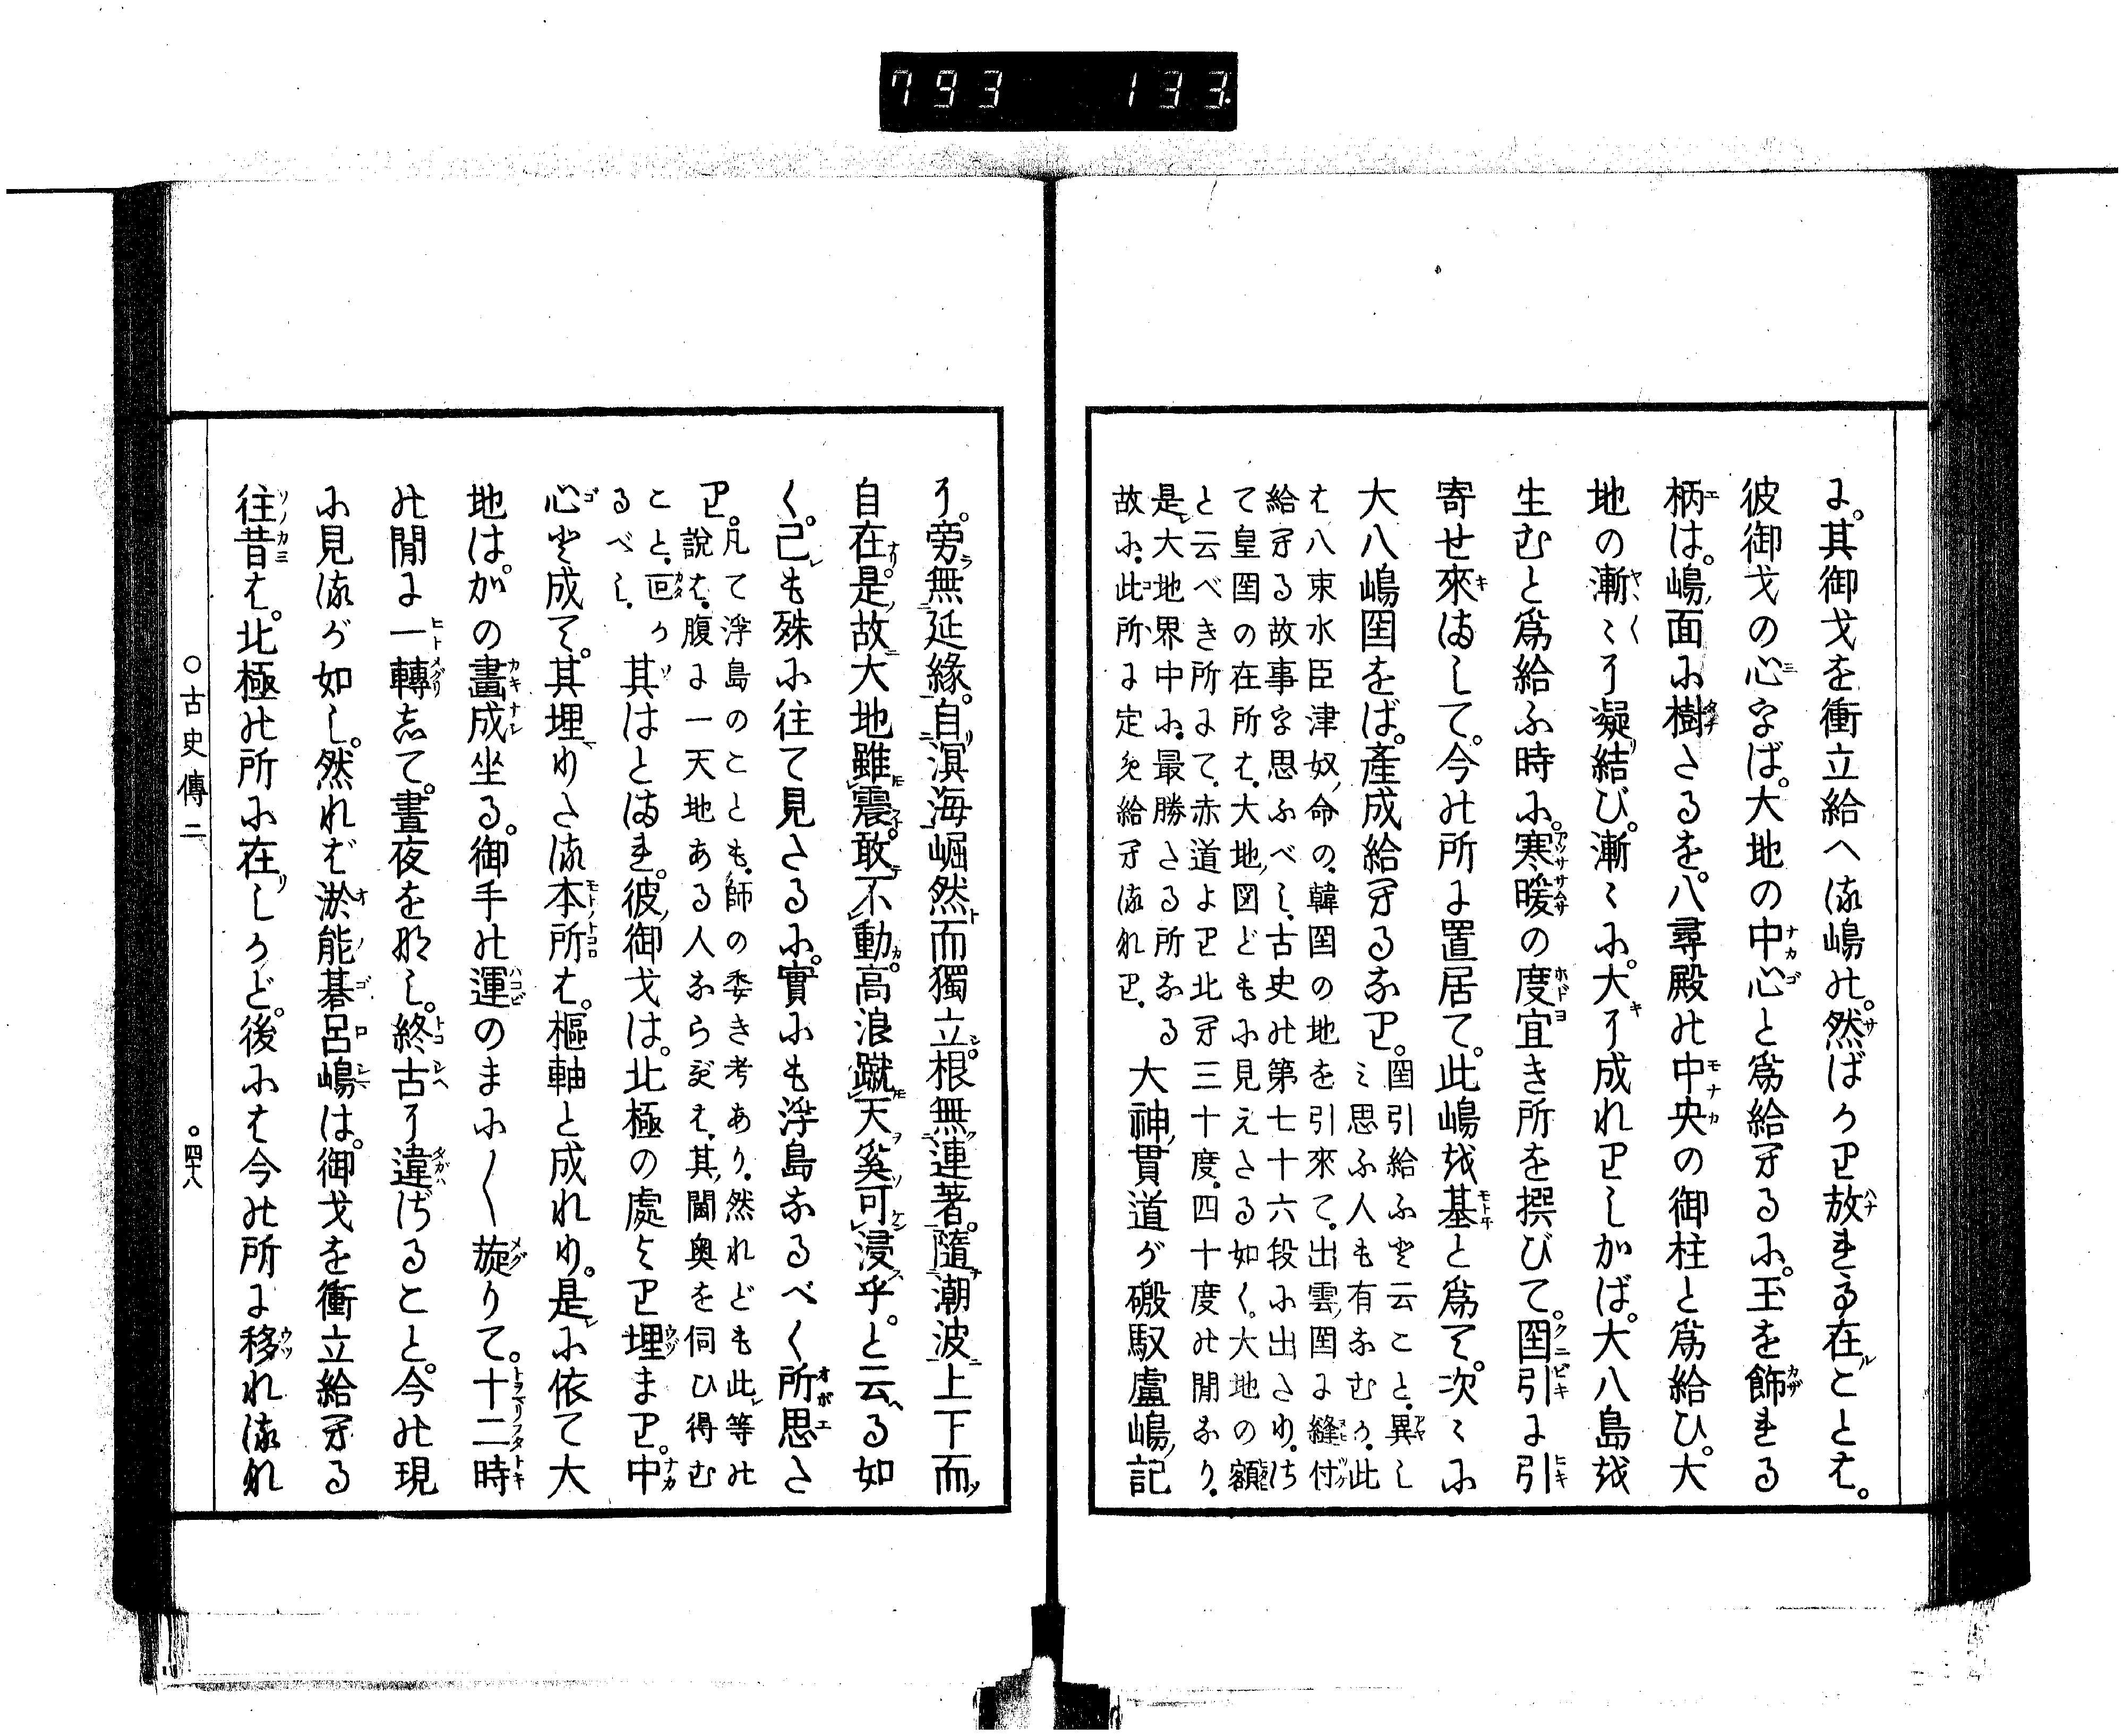 793 133
に。其御戈を衝立給へる嶋の。然ばかり放れる在ことは。
彼御戈の心をば。大地の中心と爲給へるに。玉を飾れる
柄は。嶋面に樹たるを。八尋殿の中央の御柱と爲給ひ。大
地の漸〻に凝結び。漸〻に。大に成れりしかば。大八島を
生むと爲給ふ時に。寒暖の度宜き所を撰びて。国引に引
寄せ來まして。今の所に置居て。此嶋を基と爲て。次〻に
大八嶋国をば。產成給へるなり。
国引給ふと云こと。異し
み思ふ人も有なむか。此
は八束水臣津奴命の。韓国の地を引來て。出雲国に縫付
給へる故事を思ふべし。古史の第七十六段に出たり。さ
て皇国の在所は。大地図どもに見えたる如く。大地の額
と云べき所にて。赤道より北へ三十度。四十度の閒なり。
是大地界中に。最勝たる所なる
故に。此所に定め給へるなり。
大神貫道が磤馭盧嶋記
に。旁無延緣。自溟海崛然而獨立。根無連著。隨潮波上下而
自在。是故大地雖震敢不動。高浪蹴天奚可浸乎。と云へる如
く。己も殊に往て見たるに。實にも浮島なるべく所思た
り。
凡て浮島のことも。師の委き考あり。然れども此等の
說は。腹に一天地ある人ならでは。其閫奥を伺ひ得む
こと。叵か
るべし。
其はとまれ。彼御戈は。北極の處より埋まり。中
心と成て。其埋りたる本所は。樞軸と成れり。是に依て大
地は。かの畫成坐る。御手の運のまに〱旋りて。十二時
の閒に一轉して。晝夜を爲し。終古に違ざること。今の現
に見るが如し。然れば淤能碁呂嶋は。御戈を衝立給へる
往昔は。北極の所に在しかど。後には今の所に移れるな
○古史傳二
○四十八